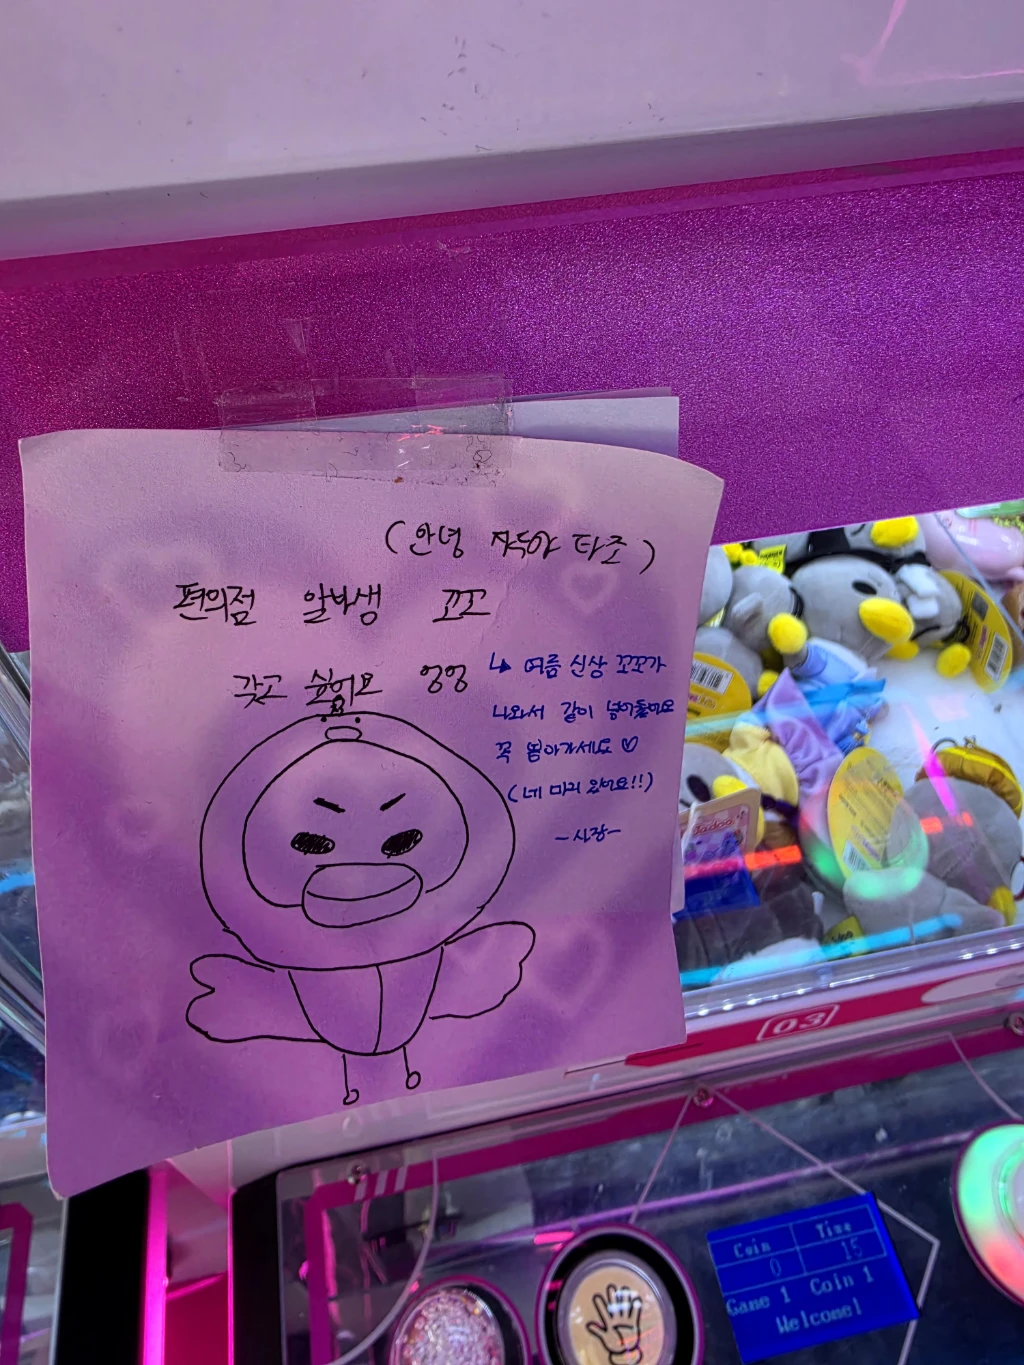 (안녕 자두야 타조)
편의점 알바생 꼬꼬
갖고 싶어요 엉엉
↳ 여름 신상 꼬꼬가
나와서 같이 넣어둘게요
꼭 뽑아가세요 ♡
(네 마리 있어요!!)
03
Coin Time
0 15
Game 1 Coin 1
Welcome!